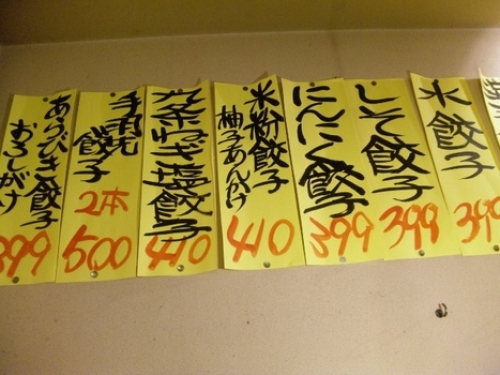 水餃子
399
しそ餃子
399
にんにく餃子
399
米粉餃子
柚子あんかけ
410
九条ねぎ塩餃子
410
手羽先
餃子
2本
500
あらびき餃子
おろしがけ
399